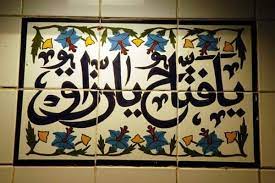 يا فتاح يا رزاق